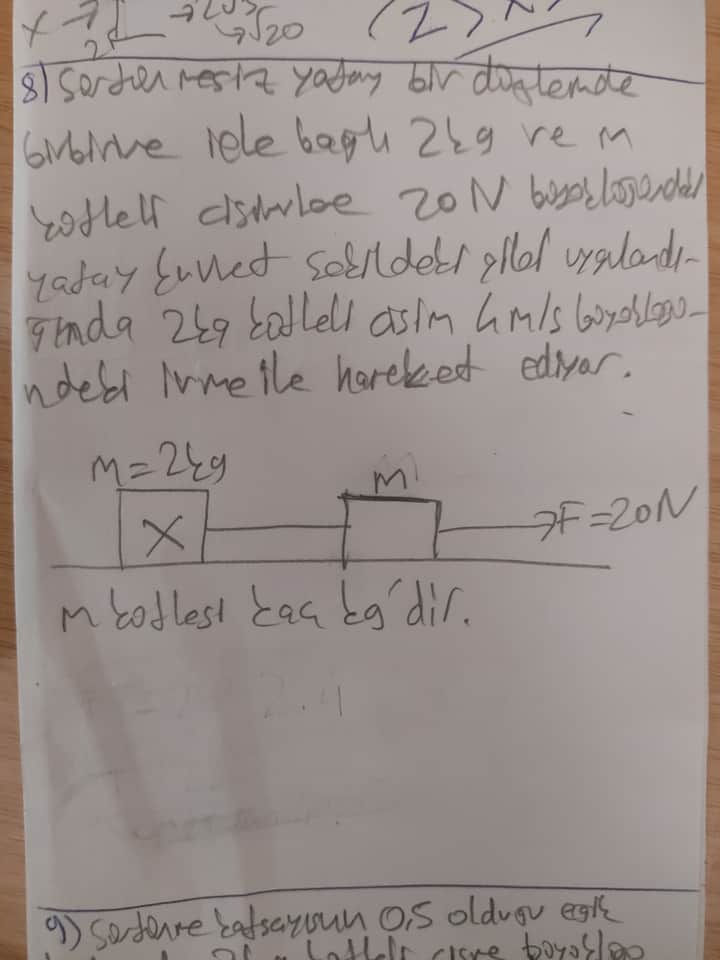 x → 2 → 2√5
→ √20
(2)
8) Sürtünmesiz yatay bir düzlemde
birbirine iple bağlı 2kg ve m
kütleli cisimlere 20N büyüklüğündeki
yatay kuvvet şekildeki gibi uygulandı-
ğında 2kg kütleli cisim 4 m/s büyüklüğü-
ndeki ivme ile hareket ediyor.
m=2kg
m
X
F=20N
m kütlesi kaç kg'dir.
2.4
9) Sürtünme katsayısının 0,5 olduğu eğik
kütleli cisme büyüklüğ